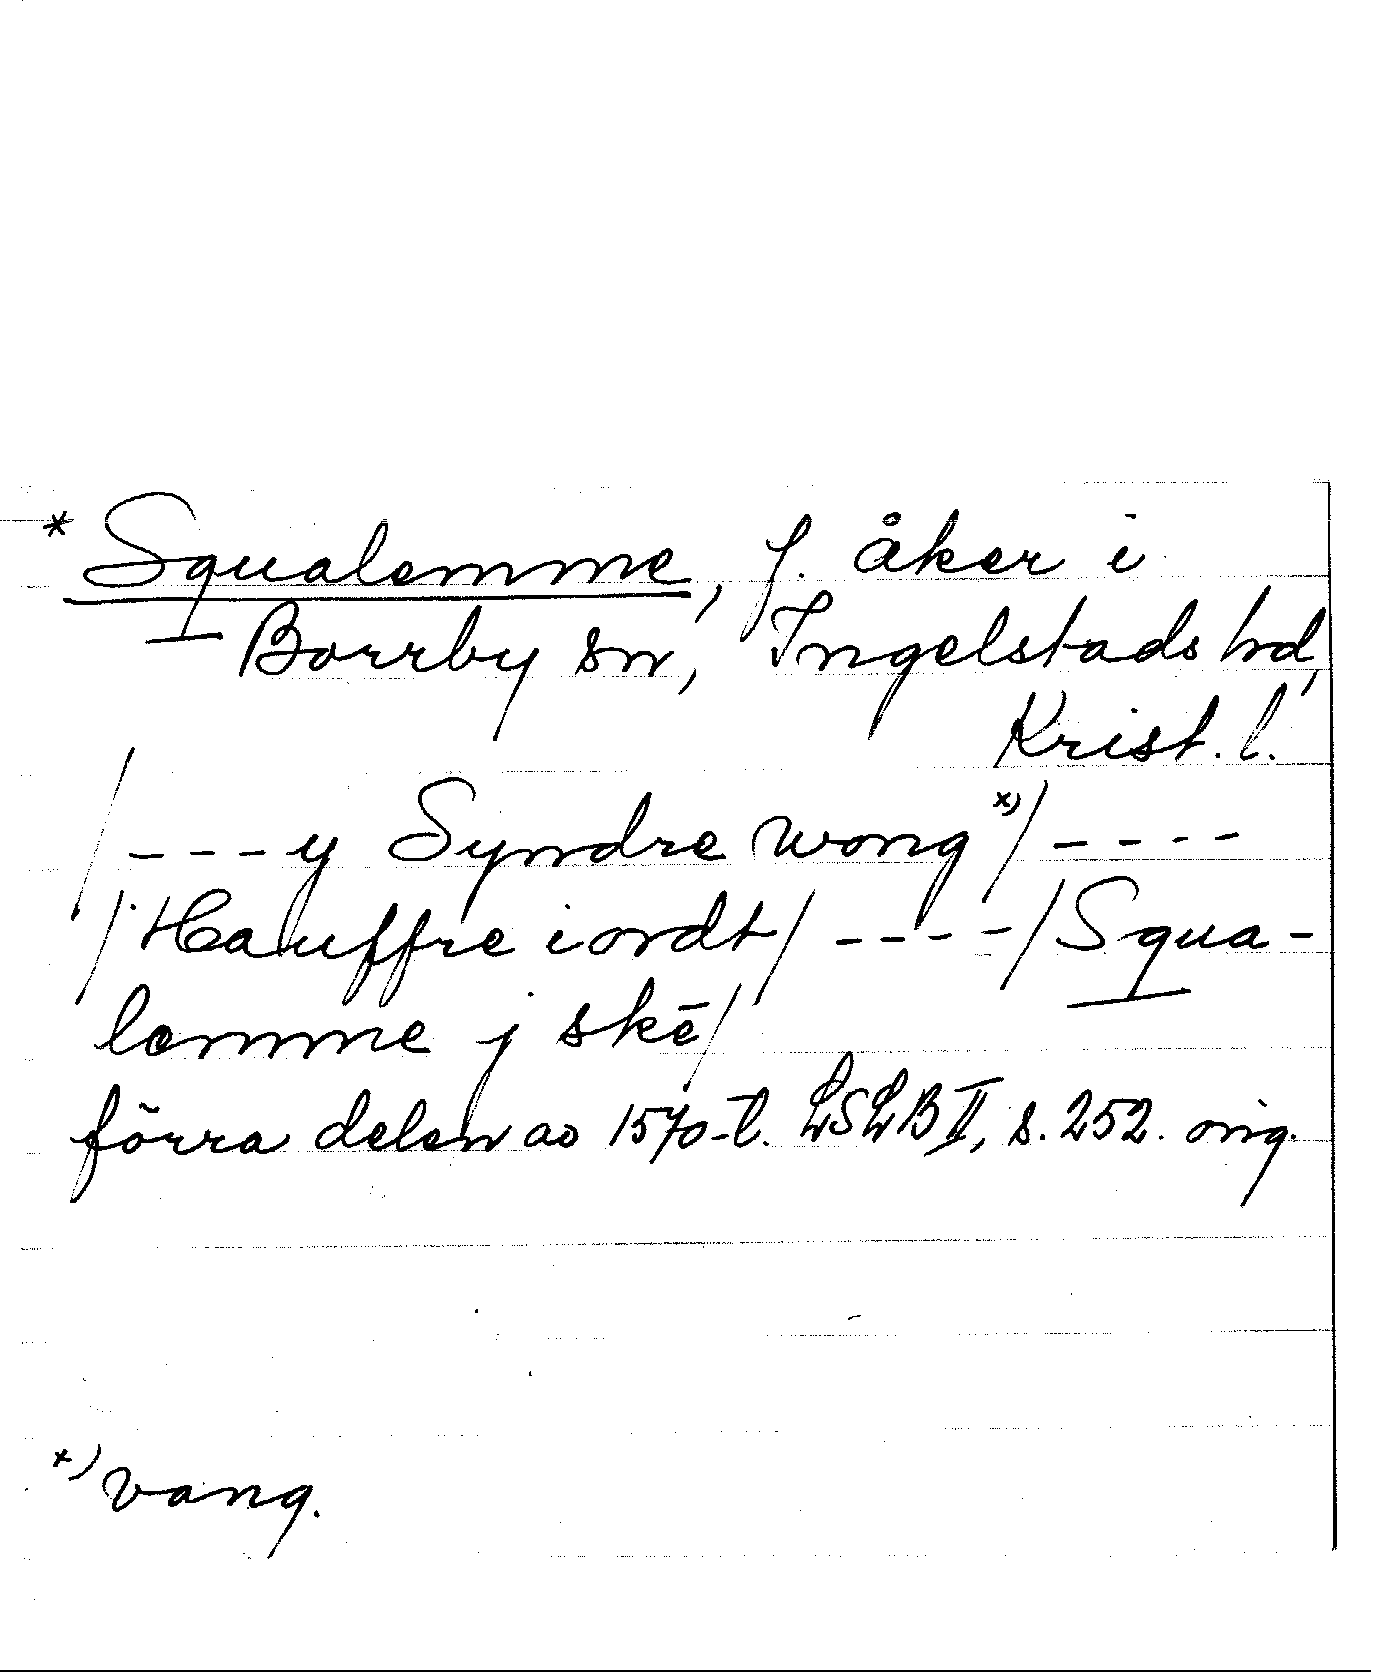 * Squalemme, f. åker i
Borrby sn, Ingelstads hd,
Krist. l.
/ - - - y Syndre wong x) / - - - -
/ Hauffre iordt / - - - - / Squa-
lemme j skē /
förra delen av 1570-t. LSLB II, s. 252. orig.
x) vang.